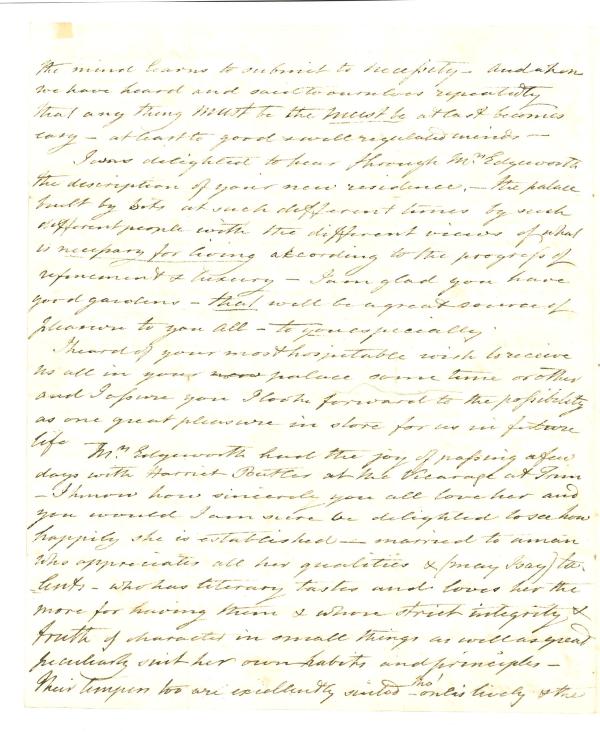 the mind learns to submit to necessity – and when
we have heard and said to ourselves repeatedly
that any thing must be the must be at last becomes
easy – at least to good & well regulated minds –
I was delighted to hear through Mrs Edgeworth
the description of your new residence. – the palace
built by bits at such different times by such
different people with the different views of what
is necessary for living according to the progress of
refinement & luxury – I am glad you have
good gardens – that will be a great source of
pleasure to you all – to you especially.
I heard of your most hospitable wish to receive
us all in your new palace some time or other
and I assure you I look forward to the possibility
as one great pleasure in store for us in future
life – Mrs Edgeworth had the joy of passing a few
days with Harriet Butler at the Vicarage at Trim
– I know how sincerely you all love her and
you would I am sure be delighted to see how
happily she is established – married to a man
who appreciates all her qualities & (may I say) ta
lents – who has literary tastes and loves her the
more for having them & whose strict integrity &
truth of character in small things as well as great
peculiarly suit her own habits and principles –
Their tempers too are excellently suited – tho' one is lively & the